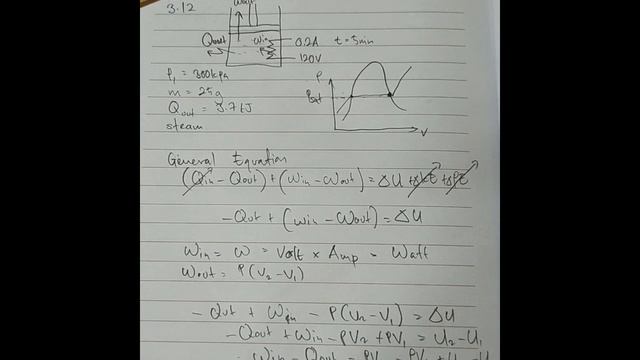 3.12
Wout
Qout Win 0.2A t = 5min
120V
P₁ = 300kpa
m = 25g
Qout = 3.7kJ
steam
P
Psat
V
General Equation
(Qin - Qout) + (Win - Wout) = ΔU + ΔKE + ΔPE
- Qout + (Win - Wout) = ΔU
Win = W = Volt × Amp = Watt
Wout = P(V₂ - V₁)
- Qout + Win - P(V₂ - V₁) = ΔU
- Qout + Win - PV₂ + PV₁ = U₂ - U₁